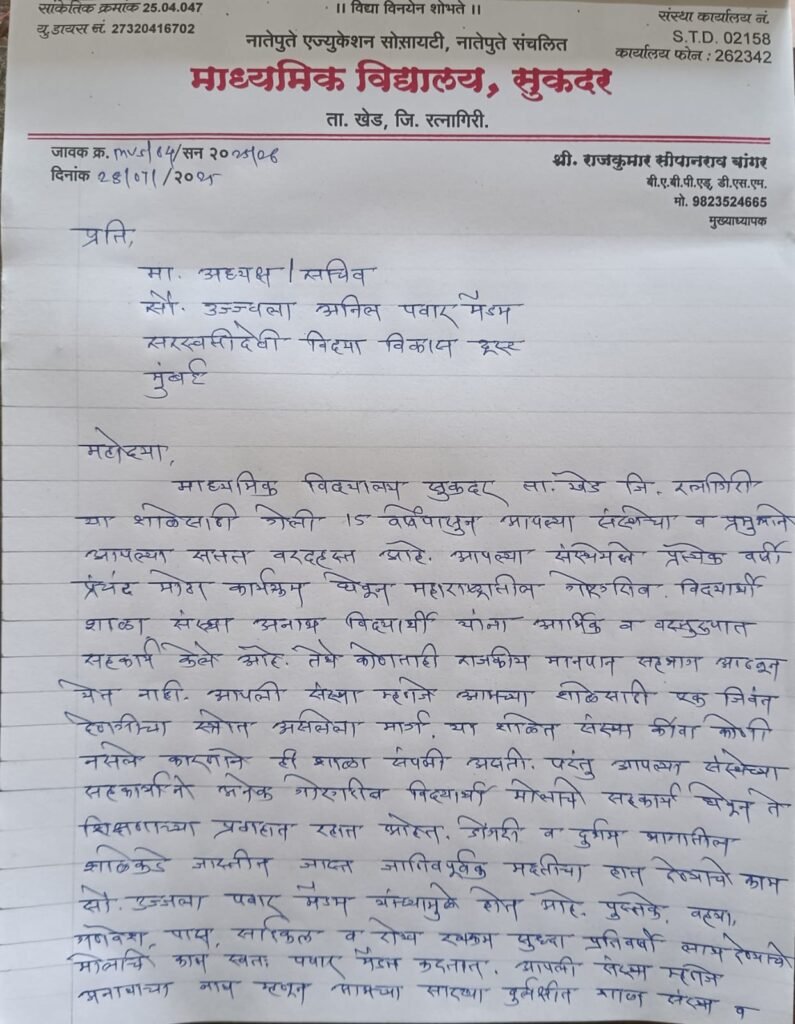 सांकेतिक क्रमांक 25.04.047
यु.डायस नं. 27320416702
।। विद्या विनयेन शोभते ।।
संस्था कार्यालय नं.
S.T.D. 02158
कार्यालय फोन : 262342
नातेपुते एज्युकेशन सोसायटी, नातेपुते संचलित
माध्यमिक विद्यालय, सुकदर
ता. खेड, जि. रत्नागिरी.
जावक क्र. mvs/64/सन २०२५/२६
दिनांक 28/07/२०२५
श्री. राजकुमार सोपानराव बांगर
बी.ए.बी.पी.एड्. डी.एस.एम.
मो. 9823524665
मुख्याध्यापक
प्रति,
मा. अध्यक्ष / सचिव
सौ. उज्ज्वला अनिल पवार मॅडम
सरस्वतीदेवी विद्या विकास ट्रस्ट
मुंबई
महोदया,
माध्यमिक विद्यालय सुकदर ता. खेड जि. रत्नागिरी
या शाळेसाठी गेली 15 वर्षेपासुन आपल्या संस्थेचा व प्रमुखाने
आपल्या सतत वरदहस्त आहे. आपल्या संस्थेमध्ये प्रत्येक वर्षी
प्रचंड मोठा कार्यक्रम घेवून महाराष्ट्रातील गोरगरिब विद्यार्थी
शाळा संस्था अनाथ विद्यार्थी यांना आर्थिक व वस्तुरुपात
सहकार्य केले आहे. तेथे कोणताही राजकीय मानपान सहभाग आढळून
येत नाही. आपली संस्था म्हणजे आमच्या शाळेसाठी एक जिवंत
देणगीचा स्त्रोत असलेला मार्ग. या शाळेत संस्था किंवा कोणी
नसले कारणाने ही शाळा संपली असती. परंतु आपल्या संस्थेच्या
सहकार्याने अनेक गोरगरिब विद्यार्थी मोलाचे सहकार्य घेवून ते
शिक्षणाच्या प्रवाहात रहात आहेत. डोंगरी व दुर्गम भागातील
शाळेकडे जास्तीत जास्त जाणिवपूर्वक मदतीचा हात देण्याचे काम
सौ. उज्जला पवार मॅडम यांच्यामुळे होत आहे. पुस्तके, वह्या,
गणवेश, सायकिल व रोख रक्कम सुध्दा प्रतिवर्षी देण्याचे
मोलाचे काम स्वतः पवार मॅडम करतात. आपली संस्था म्हणजे
अनाथाचा नाथ म्हणून आमच्या सारख्या दुर्लक्षीत शाळा संस्था व